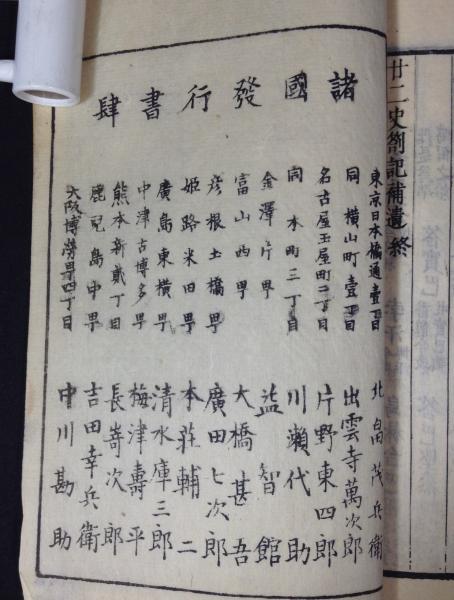 廿二史劄記補遺終
諸國發行書肆
東京日本橋通壹丁目 北畠茂兵衛
同 橫山町壹丁目 出雲寺萬次郎
名古屋玉屋町二丁目 片野東四郎
同 本町三丁目 川瀨代助
金澤片町 益智館
富山西町 大橋甚吾
彥根土橋町 廣田七次郎
姬路米田町 本莊輔二
廣島東橫町 清水庫三郎
中津古博多町 梅津壽平
熊本新貳丁目 長嵜次郎
鹿兒島中町 吉田幸兵衛
大阪博勞町四丁目 中川勘助